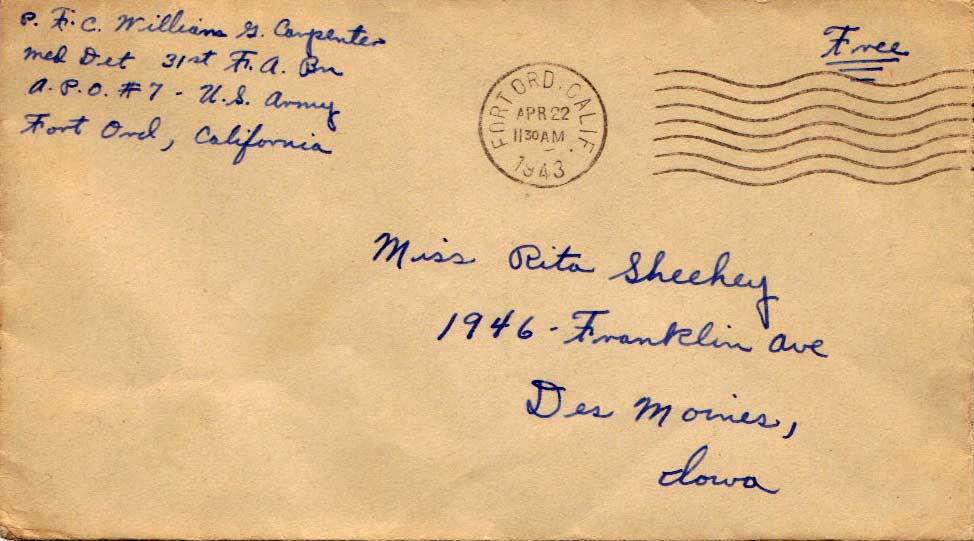 P. F. C. William G. Carpenter
Med Det 31st F. A. Bn
A. P. O. #7 - U.S. Army
Fort Ord, California
Free
FORT ORD, CALIF.
APR 22
11 30 AM
1943
Miss Rita Sheehey
1946 - Franklin Ave
Des Moines,
Iowa